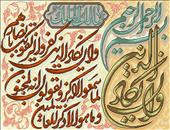 بسم الله الرحمن الرحيم
وان يكاد الذين
وان يكاد الذين كفروا ليزلقونك بابصارهم
لما سمعوا الذكر ويقولون انه لمجنون
وما هو الا ذكر للعالمين